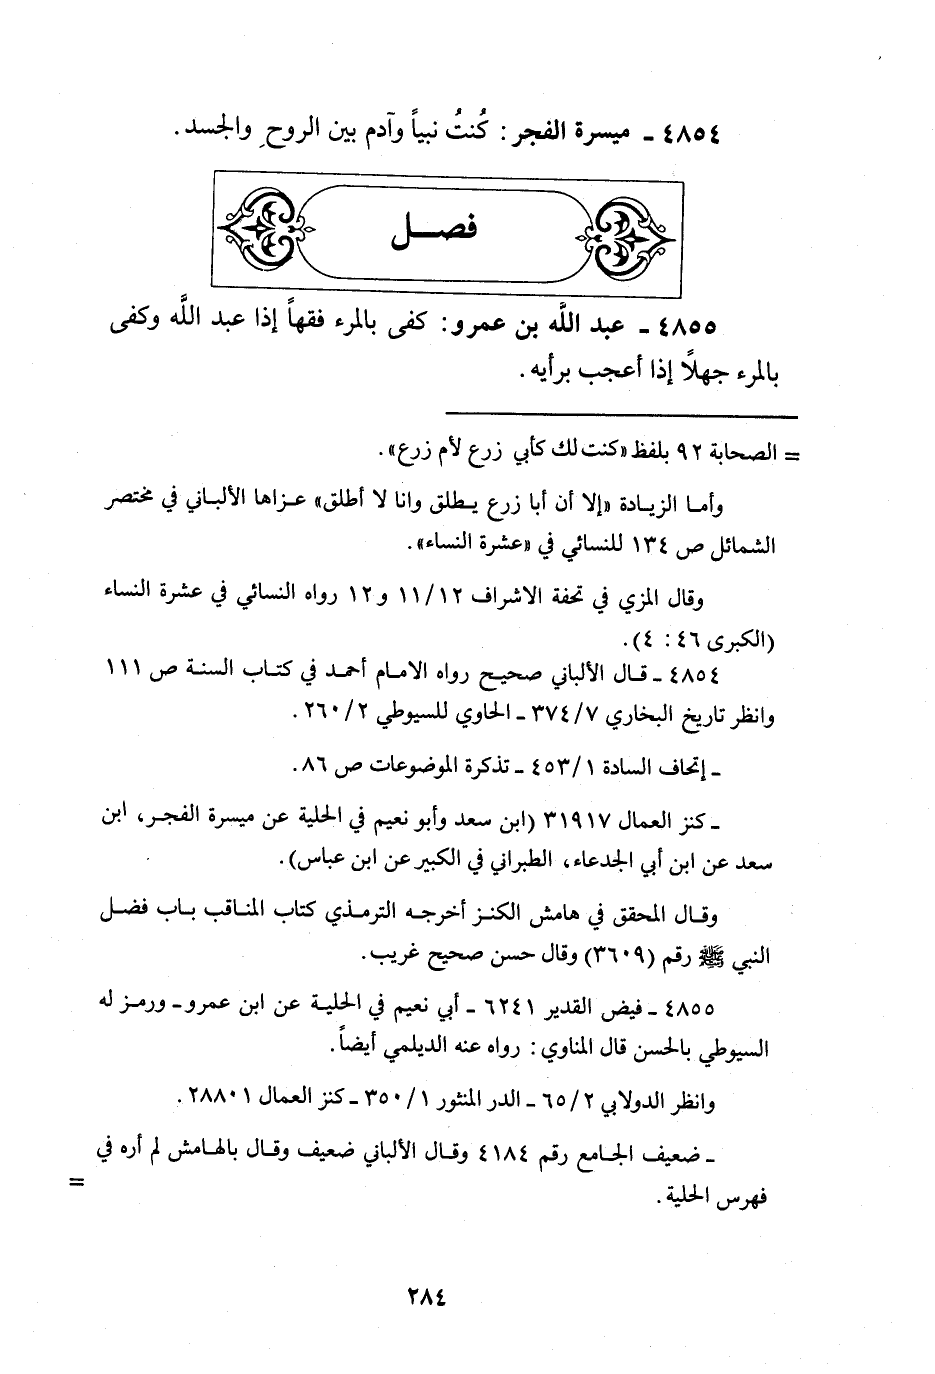 ٤٨٥٤ ـ ميسرة الفجر : كُنتُ نبياً وآدم بين الروحِ والجسد .
فصـــل
٤٨٥٥ ـ عبد اللَّه بن عمرو : كفى بالمرء فقهاً إذا عبد اللَّه وكفى
بالمرء جهلاً إذا أعجب برأيه .
= الصحابة ٩٢ بلفظ «كنت لك كأبي زرع لأم زرع» .
وأما الزيادة «إلا أن أبا زرع يطلق وانا لا أطلق» عزاها الألباني في مختصر
الشمائل ص ١٣٤ للنسائي في «عشرة النساء» .
وقال المزي في تحفة الاشراف ١١/١٢ و١٢ رواه النسائي في عشرة النساء
(الكبرى ٤٦ : ٤) .
٤٨٥٤ ـ قال الألباني صحيح رواه الامام أحمد في كتاب السنة ص ١١١
وانظر تاريخ البخاري ٣٧٤/٧ ـ الحاوي للسيوطي ٢٦٠/٢ .
ـ إتحاف السادة ٤٥٣/١ ـ تذكرة الموضوعات ص ٨٦ .
ـ كنز العمال ٣١٩١٧ (ابن سعد وأبو نعيم في الحلية عن ميسرة الفجر، ابن
سعد عن ابن أبي الجدعاء، الطبراني في الكبير عن ابن عباس) .
وقال المحقق في هامش الكنز أخرجه الترمذي كتاب المناقب باب فضل
النبي ﷺ رقم (٣٦٠٩) وقال حسن صحيح غريب .
٤٨٥٥ ـ فيض القدير ٦٢٤١ ـ أبي نعيم في الحلية عن ابن عمرو ـ ورمز له
السيوطي بالحسن قال المناوي : رواه عنه الديلمي أيضاً .
وانظر الدولابي ٦٥/٢ ـ الدر المنثور ٣٥٠/١ ـ كنز العمال ٢٨٨٠١ .
ـ ضعيف الجامع رقم ٤١٨٤ وقال الألباني ضعيف وقال بالهامش لم أره في
فهرس الحلية . =
٢٨٤